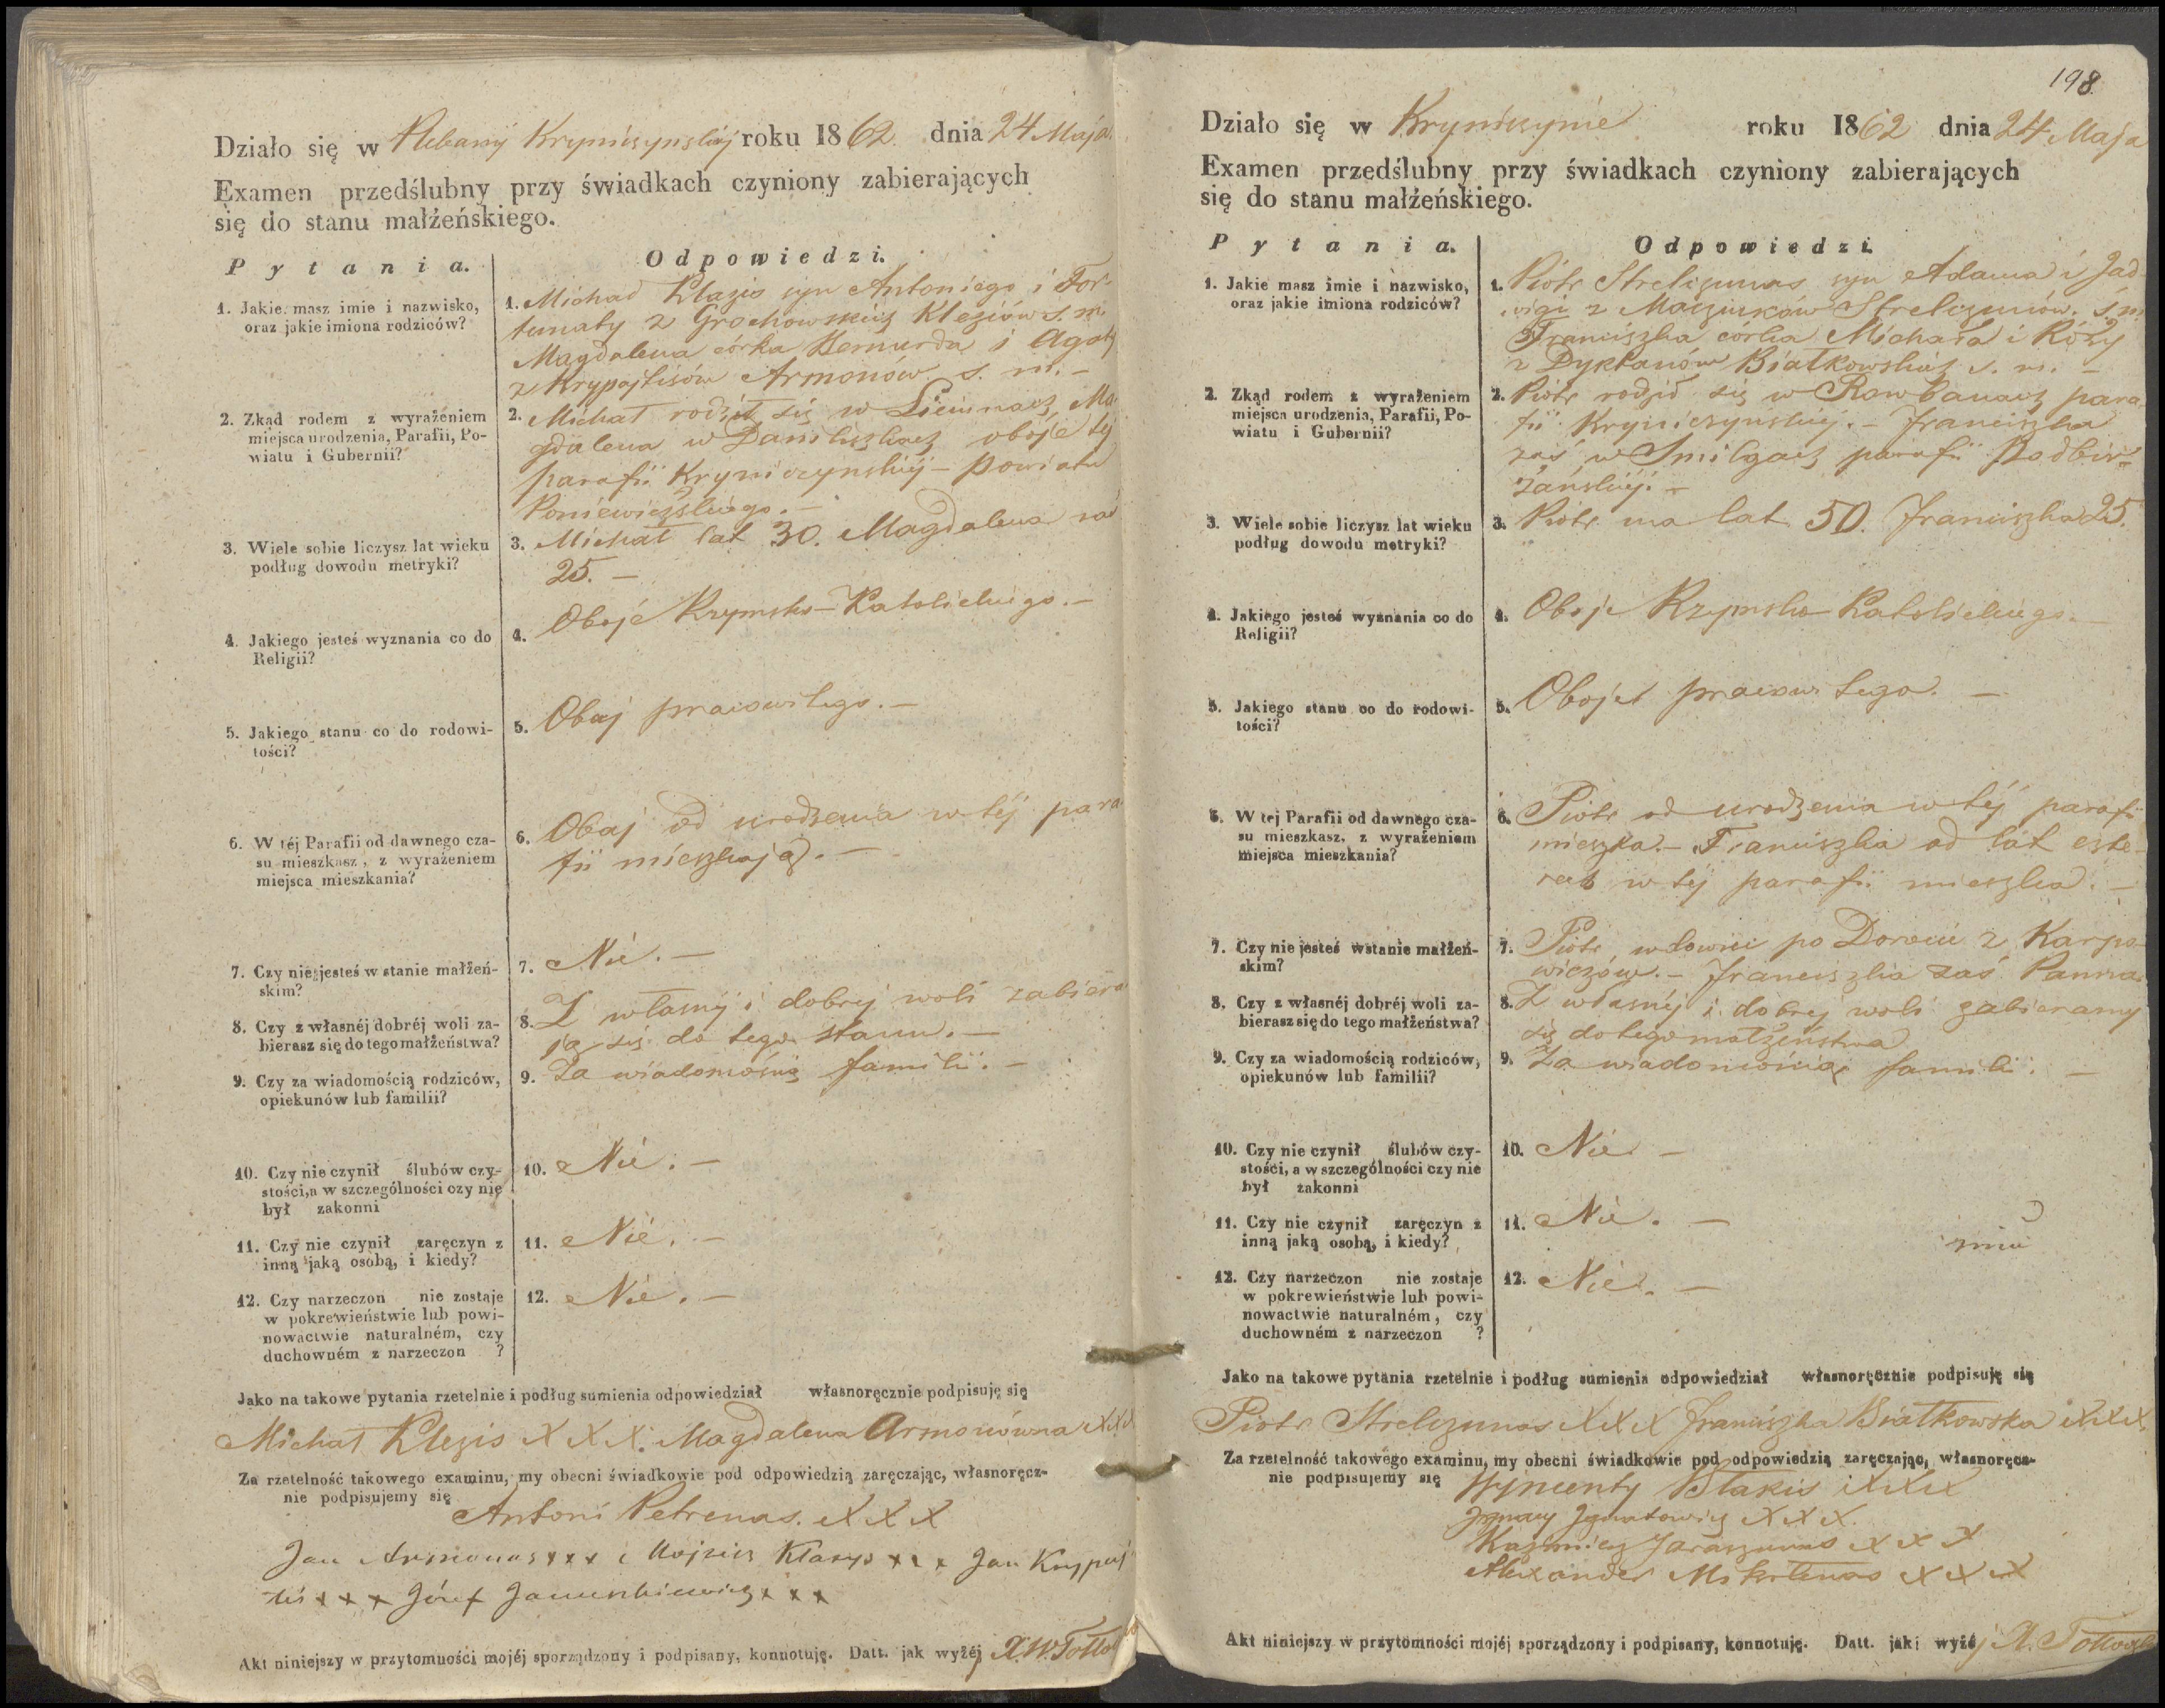 Działo się w Plebanij Kryniczynskiej roku 1862. dnia 24 Maja.
Examen przedślubny przy świadkach czyniony zabierających
się do stanu małżeńskiego.
Pytania.
Odpowiedzi.
1. Jakie masz imie i nazwisko,
oraz jakie imiona rodziców?
1. Michał Klezis syn Antoniego i For-
tunaty z Grochowskich Kleziów s. m.
Magdalena córka Bernarda i Agaty
z Krypajtisów Armonów s. m. –
2. Zkąd rodem z wyrażeniem
miejsca urodzenia, Parafii, Po-
wiatu i Gubernii?
2. Michał rodził się w Ma
gdalena w Daniliszkach oboje tej
parafii Kryniczynskiéj – Powiatu
Poniewieżskiego. –
3. Wiele sobie liczysz lat wieku
podług dowodu metryki?
3. Michał lat 30. Magdalena
25. –
4. Jakiego jesteś wyznania co do
Religii?
4. Oboje Rzymsko-Katolickiego. –
5. Jakiego stanu co do rodowi-
tości?
5. Obaj pracowitego. –
6. W téj Parafii od dawnego cza-
su mieszkasz, z wyrażeniem
miejsca mieszkania?
6. Obaj od urodzenia w téj para
fii mieszkają. –
7. Czy nie jesteś w stanie małżeń-
skim?
7. Nie. –
8. Czy z własnéj dobréj woli za-
bierasz się do tego małżeństwa?
8. Z własnij i dobrej woli zabiera
ją się do tego stanu. –
9. Czy za wiadomością rodziców,
opiekunów lub familii?
9. Za wiadomością familii. –
10. Czy nie czynił ślubów czy-
stości, a w szczególności czy nie
był zakonni
10. Nie. –
11. Czy nie czynił zaręczyn z
inną jaką osobą, i kiedy?
11. Nie. –
12. Czy narzeczon nie zostaje
w pokrewieństwie lub powi-
nowactwie naturalném, czy
duchowném z narzeczon ?
12. Nie. –
Jako na takowe pytania rzetelnie i podług sumienia odpowiedział własnoręcznie podpisuję się
Michał Klezis X X X. Magdalena Armonówna X X X
Za rzetelność takowego examinu, my obecni świadkowie pod odpowiedzią zaręczając, własnoręcz-
nie podpisujemy się
Antoni Petrenas. X X X
Jan Armonas x x x i Klazys x x x Jan Krypaj
tis x x x Józef Januszkiewicz x x x
Akt niniejszy w przytomności mojéj sporządzony i podpisany, konnotuję. Datt. jak wyżéj
198.
Działo się w Kryniczynie roku 1862 dnia 24 Maja
Examen przedślubny przy świadkach czyniony zabierających
się do stanu małżeńskiego.
Pytania.
Odpowiedzi.
1. Jakie masz imie i nazwisko,
oraz jakie imiona rodziców?
1. Piotr Strelczunas syn Adama i Jad
wigi z Maciunków Strelczunów. s. m.
Franciszka córka Michała i Róży
z Dyktanów Białkowskich s. m. –
2. Zkąd rodem z wyrażeniem
miejsca urodzenia, Parafii, Po-
wiatu i Gubernii?
2. Piotr rodził się w para
fii Kryniczynskiej. – Franciszka
zaś w Smilgach parafii Podbir-
żańskiéj. –
3. Wiele sobie liczysz lat wieku
podług dowodu metryki?
3. Piotr ma lat 50. Franciszka 25.
4. Jakiego jesteś wyznania co do
Religii?
4. Oboje Rzymsko Katolickiego. –
5. Jakiego stanu co do rodowi-
tości?
5. Obojet pracowitego. –
6. W tej Parafii od dawnego cza-
su mieszkasz, z wyrażeniem
miejsca mieszkania?
6. Piotr od urodzenia w téj parafii
mieszka. – Franciszka od lat czte-
rech w téj parafii mieszka. –
7. Czy nie jesteś wstanie małżeń-
skim?
7. Piotr wdowiec po Dorocie z Karpo-
wiczów. – Franciszka zaś Panna
8. Czy z własnéj dobréj woli za-
bierasz się do tego małżeństwa?
8. Z własnéj i dobrej woli zabieramy
się do tego małżeństwa
9. Czy za wiadomością rodziców,
opiekunów lub familii?
9. Za wiadomością familii. –
10. Czy nie czynił ślubów czy-
stości, a w szczególności czy nie
był zakonni
10. Nie –
11. Czy nie czynił zaręczyn z
inną jaką osobą, i kiedy?
11. Nie. –
12. Czy narzeczon nie zostaje
w pokrewieństwie lub powi-
nowactwie naturalném, czy
duchowném z narzeczon ?
12. Nie. –
Jako na takowe pytania rzetelnie i podług sumienia odpowiedział własnoręcznie podpisuję się
Piotr Strelczunas X X X Franciszka Białkowska X X X.
Za rzetelność takowego examinu, my obecni świadkowie pod odpowiedzią zaręczając, własnoręcz-
nie podpisujemy się
Wincenty X X X
Ignacy Ignatowicz X X X.
Kazimierz Jaraszunas X X X
Alexander Mikolenas X X X
Akt niniejszy w przytomności mojéj sporządzony i podpisany, konnotuję. Datt. jak wyżéj